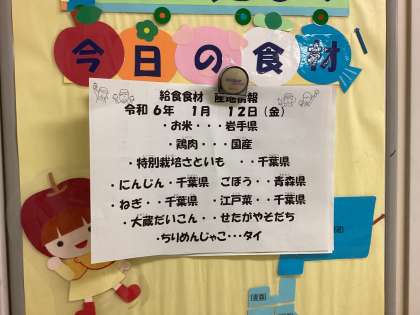 今日の食材
給食食材　産地情報
令和 6年　1月　12日（金）
・お米・・・岩手県
・鶏肉・・・国産
・特別栽培さといも　・・千葉県
・にんじん・千葉県　ごぼう・・青森県
・ねぎ・・千葉県　・江戸菜・・千葉県
・大蔵だいこん・・せたがやそだち
・ちりめんじゃこ・・・タイ